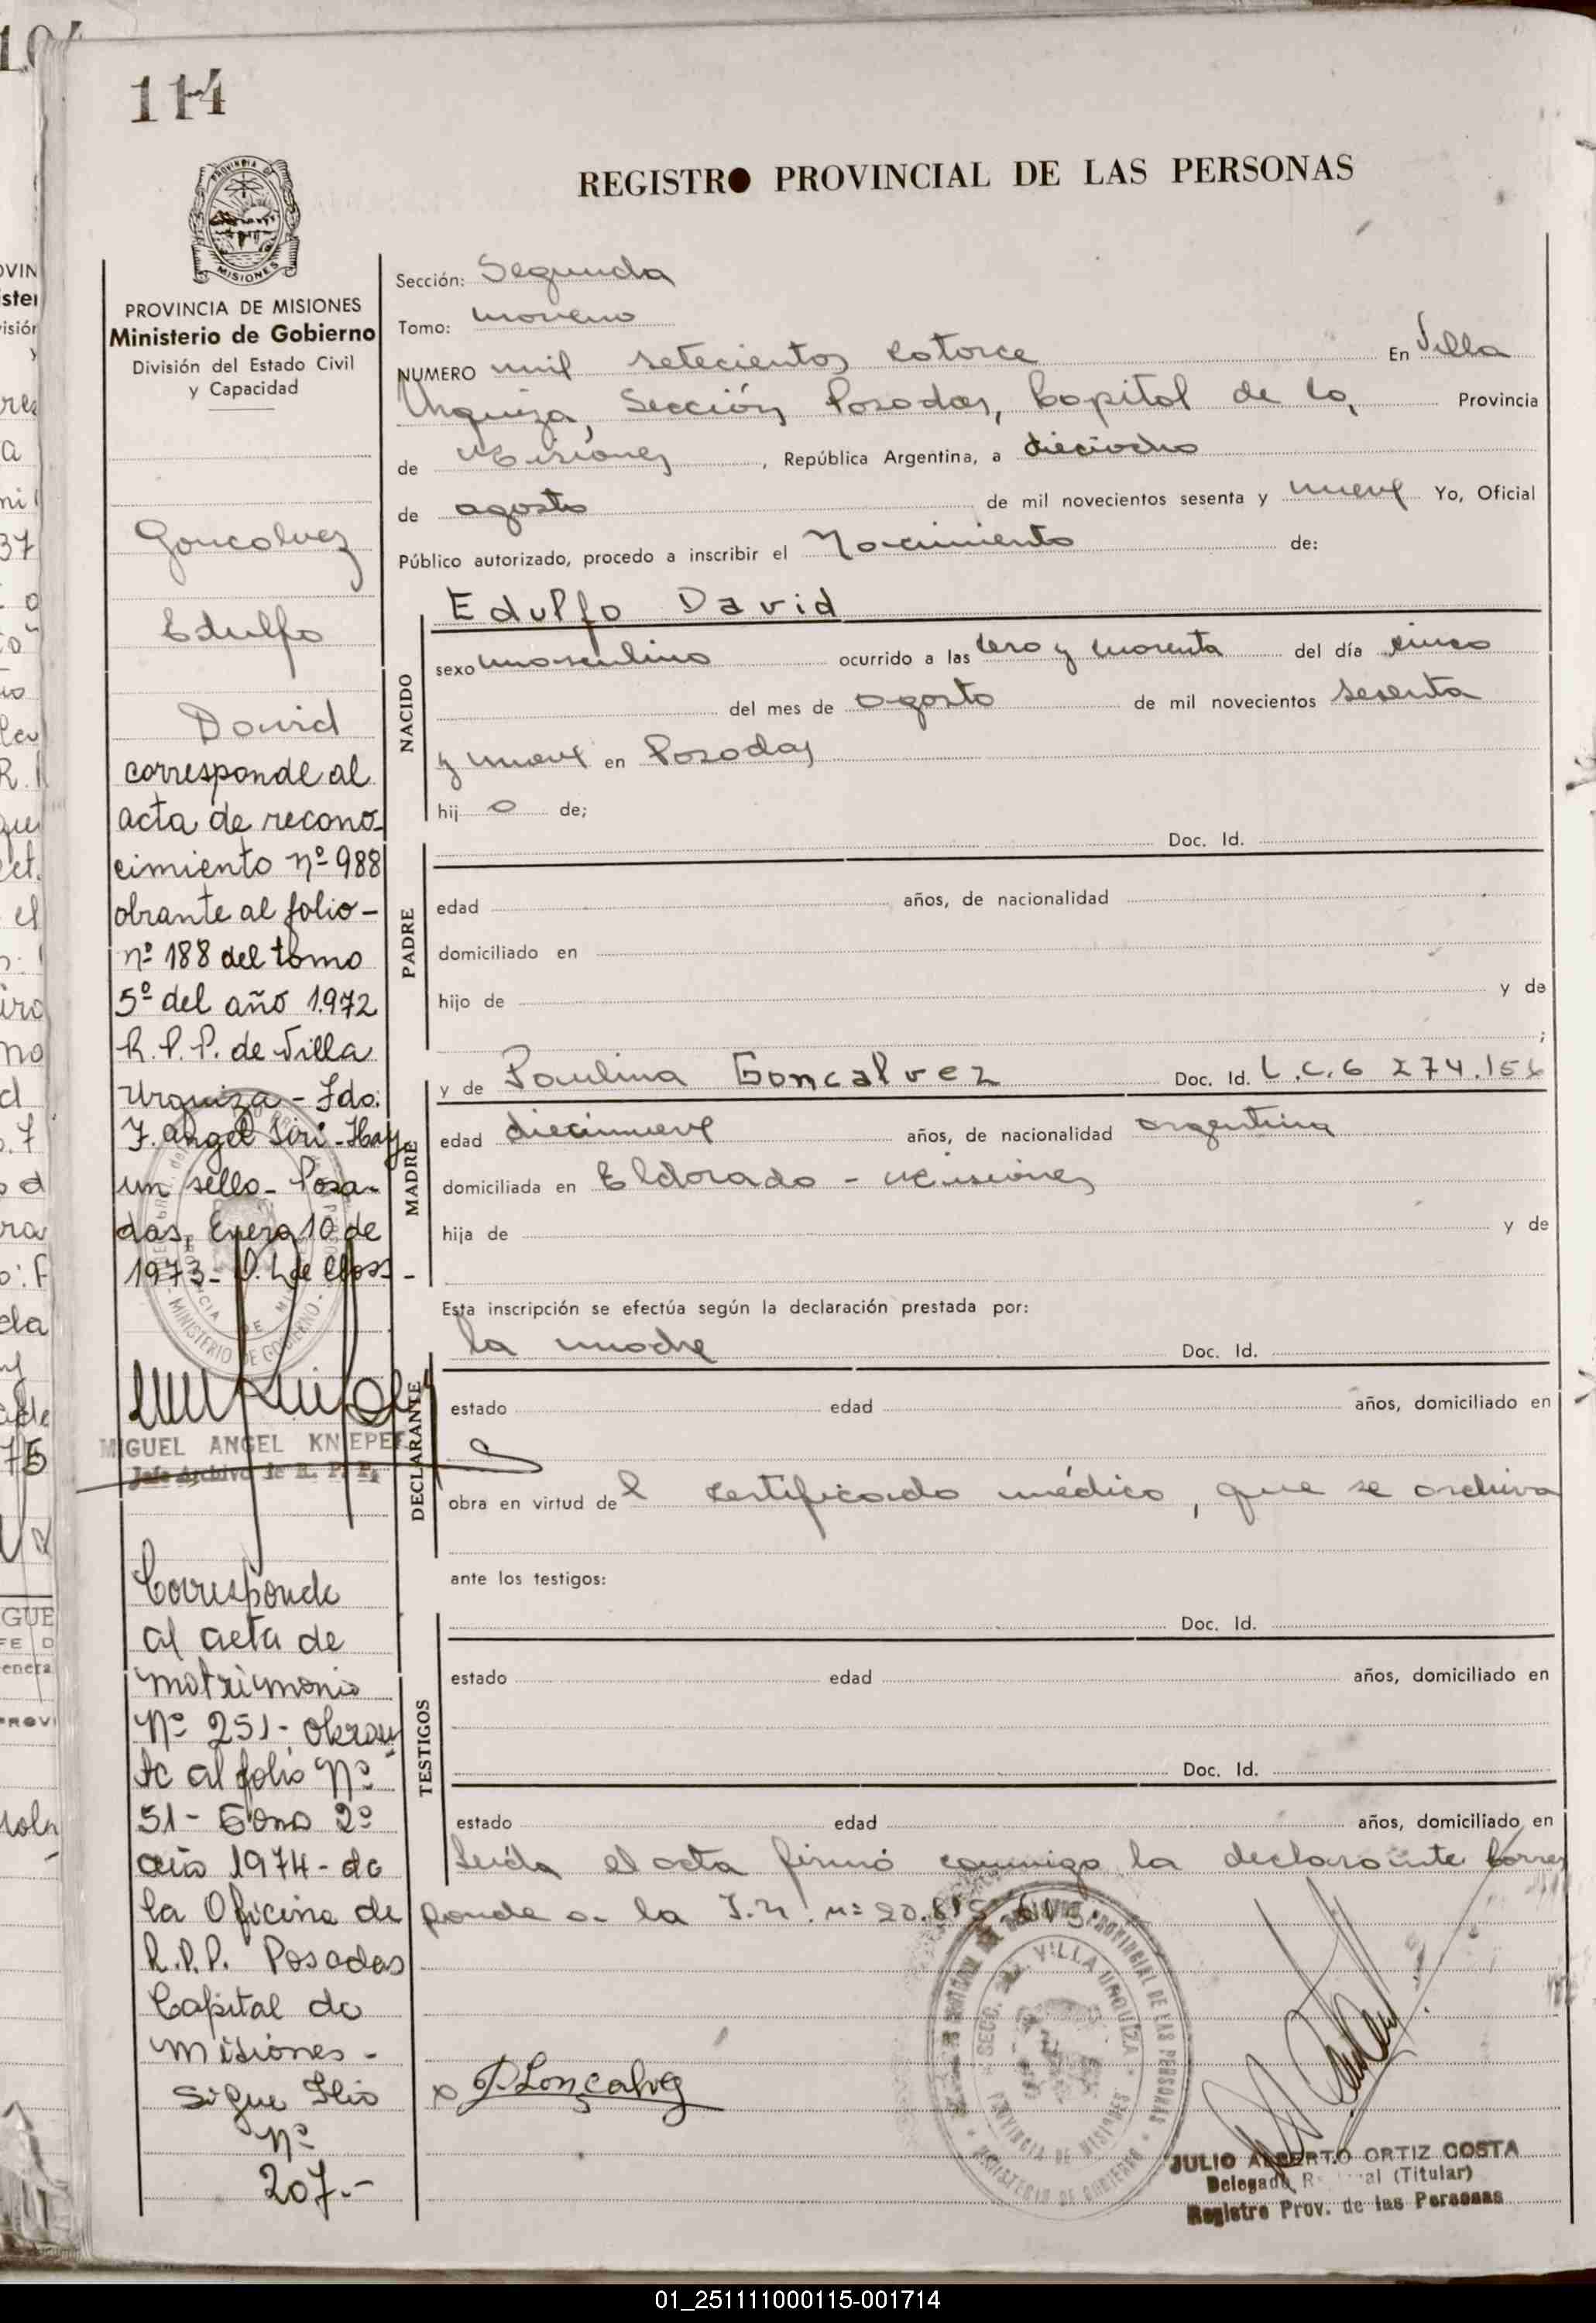 114
REGISTRO PROVINCIAL DE LAS PERSONAS
PROVINCIA DE MISIONES
Ministerio de Gobierno
División del Estado Civil
y Capacidad
Goncalvez
Edulfo
David
corresponde al
acta de recono-
cimiento nº 988
obrante al folio-
nº 188 del tomo
5º del año 1.972
R.P.P. de Villa
Urquiza - Fdo:
F. Angel Siri - Hay
un sello - Posa-
das, Enero 10 de
1973 -
MIGUEL ANGEL KNIEPE
Jefe Archivo de R. P. P.
Corresponde
al acta de
matrimonio
Nº 251- obran
te al folio Nº
51- Tomo 2º
año 1974- de
la Oficina de
R.P.P. Posadas
Capital de
Misiones -
Sigue folio
Nº
207.-
Sección: Segunda
Tomo: noveno
NUMERO mil setecientos catorce En Villa
Urquiza, Sección Posadas, Capital de la Provincia
de Misiones, República Argentina, a dieciocho
de agosto de mil novecientos sesenta y nueve Yo, Oficial
Público autorizado, procedo a inscribir el Nacimiento de:
NACIDO
Edulfo David
sexo masculino ocurrido a las cero y cuarenta del día cinco
del mes de agosto de mil novecientos sesenta
y nueve en Posadas
hij o de;
PADRE
Doc. Id.
edad años, de nacionalidad
domiciliado en
hijo de y de
;
MADRE
y de Paulina Goncalvez Doc. Id. L.C. 6 274.156
edad diecinueve años, de nacionalidad argentina
domiciliada en Eldorado - Misiones
hija de y de
Esta inscripción se efectúa según la declaración prestada por:
DECLARANTE
la madre Doc. Id.
estado edad años, domiciliado en
obra en virtud del certificado médico, que se archiva
ante los testigos:
TESTIGOS
Doc. Id.
estado edad años, domiciliado en
Doc. Id.
estado edad años, domiciliado en
Leída el acta firmó conmigo la declarante Corres
ponde a la I.N. nº
SECC. 2da. VILLA URQUIZA
PROVINCIA DE MISIONES
MINISTERIO DE GOBIERNO
P. Gonçalvez
JULIO ALBERTO ORTIZ COSTA
Delegado (Titular)
Registro Prov. de las Personas
01_251111000115-001714